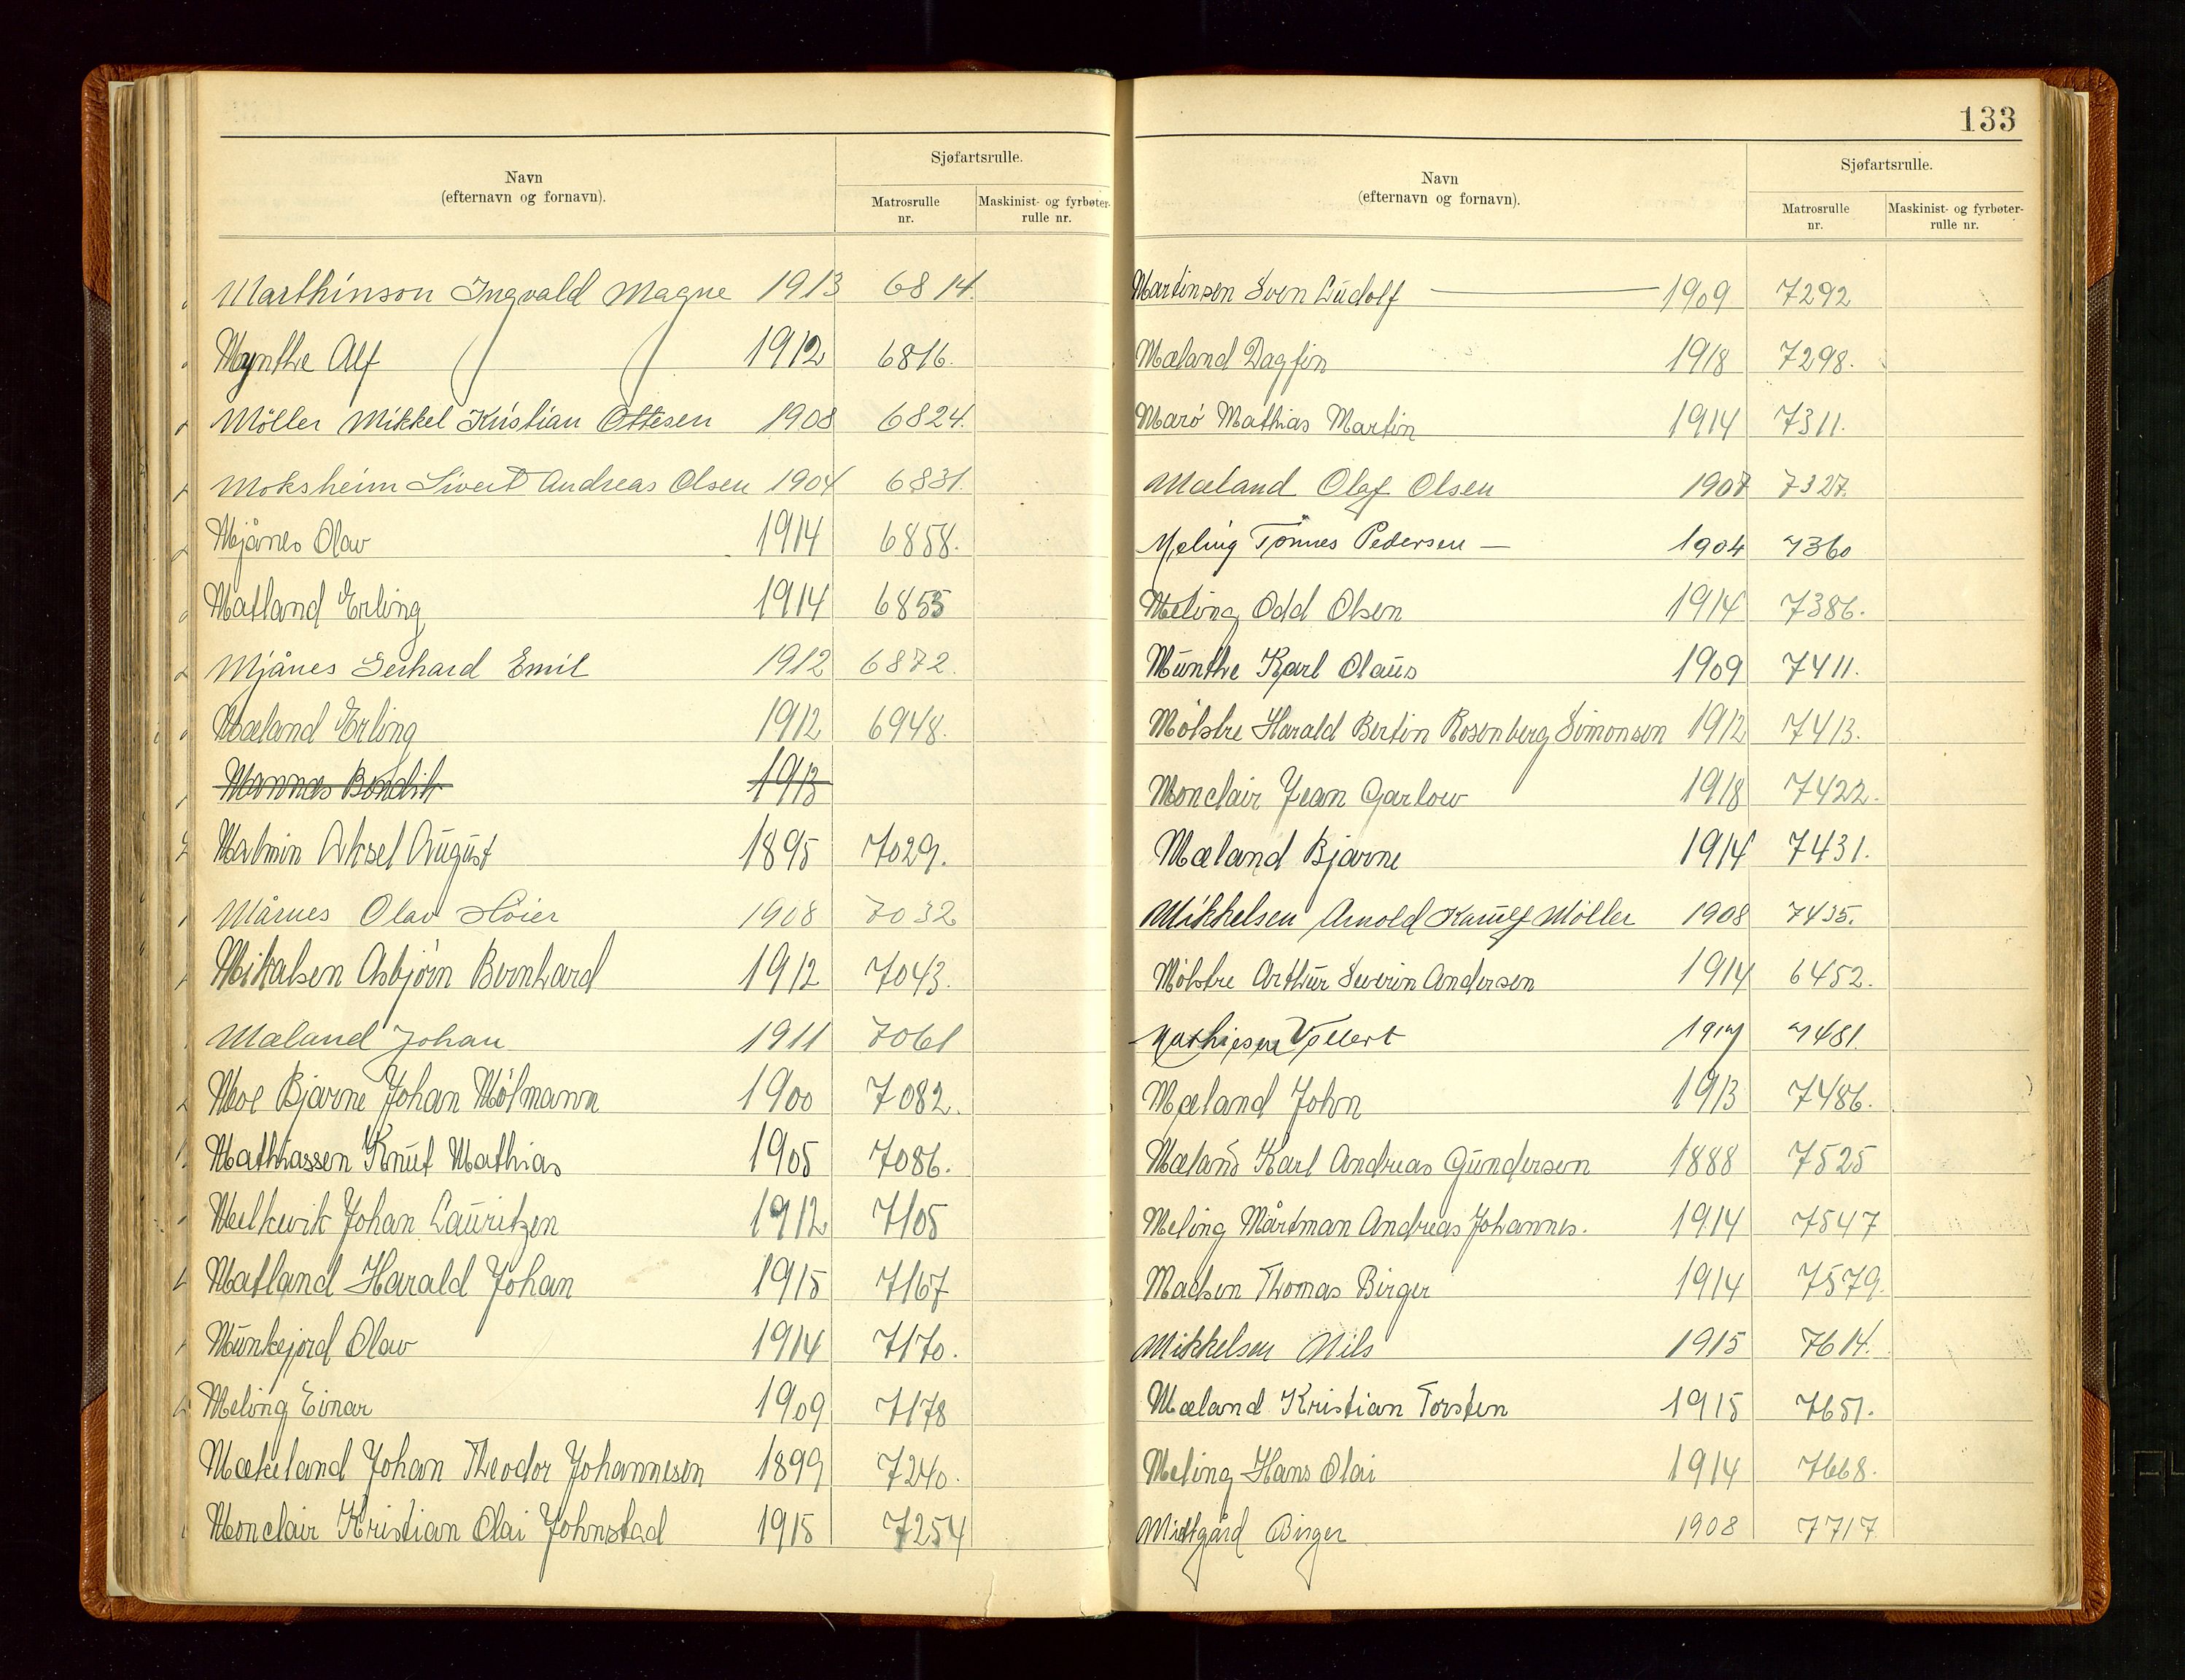 Navn
(efternavn og fornavn).
Sjøfartsrulle.
Matrosrulle
nr.
Maskinist- og fyrbøter-
rulle nr.
Marthinson Ingvald Magne 1913 6814.
Mynthe Alf 1912 6816.
Möller Mikkel Kristian Ottesen 1908 6824.
Moksheim Sivert Andreas Olsen 1904 6831.
Mjånes Olav 1914 6858.
Matland Erling 1914 6855
Mjånes Gerhard Emil 1912 6872.
Mæland Erling 1912 6948.
Mannes Bendik 1913
Malmin Aksel August 1895 7029.
Mårnes Olav Höier 1908 7032
Mikalsen Asbjörn Bernhard 1912 7043.
Mæland Johan 1911 7061
Moe Bjarne Johan Mölmann 1900 7082.
Mathiassen Knut Mathias 1905 7086.
Melkevik Johan Lauritzen 1912 7105
Matland Harald Johan 1915 7167
Munkejord Olav 1914 7170.
Meling Einar 1909 7178
Mækeland Johan Theodor Johannesen 1899 7240.
Monclair Kristian Olai Johnstad 1915 7254
133
Navn
(efternavn og fornavn).
Sjøfartsrulle.
Matrosrulle
nr.
Maskinist- og fyrbøter-
rulle nr.
Martinsen Sven Ludolf 1909 7292
Mæland Dagfin 1918 7298.
Marö Mathias Martin 1914 7311.
Mæland Olaf Olsen 1907 7327.
Meling Tönnes Pedersen — 1904 7360
Meling Odd Olsen 1914 7386.
Munthe Karl Olaus 1909 7411.
Mölstre Harald Bertin Rosenberg Simonsen 1912 7413.
Monclair Jean Garlow 1918 7422.
Mæland Bjarne 1914 7431.
Mikkelsen Arnold Møller 1908 7435.
Mölstre Arthur Severin Andersen 1914 6452.
Mathiesen Vollert 1917 7481.
Mæland John 1913 7486.
Mæland Karl Andreas Gundersen 1888 7525
Meling Mårtman Andreas Johannes. 1914 7547
Madsen Thomas Birger 1914 7579.
Mikkelsen Nils 1915 7614.
Mæland Kristian Torsten 1915 7651.
Meling Hans Olai 1914 7668.
Midtgård Birger 1908 7717